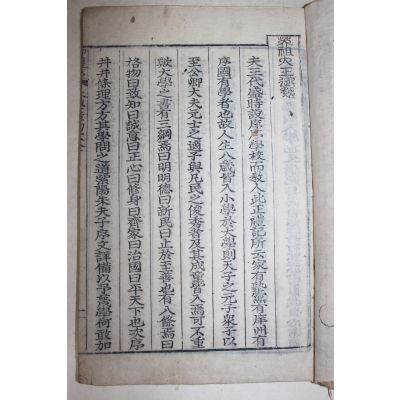 英祖大王御製
夫三代盛時設序學校而敎人此正禮記所云家有塾黨有庠州有
序國有學者也故人生八歲皆入小學於大學則天子之元子衆子以
至公卿大夫元士之適子與凡民之俊秀者及其成童皆入焉可不重
歟大學之書有三綱焉曰明明德曰新民曰止於至善也有八條焉曰
格物曰致知曰誠意曰正心曰修身曰齊家曰治國曰平天下也次序
井井條理方方其學問之道紫陽朱夫子序文詳備以予蔑學何敢加